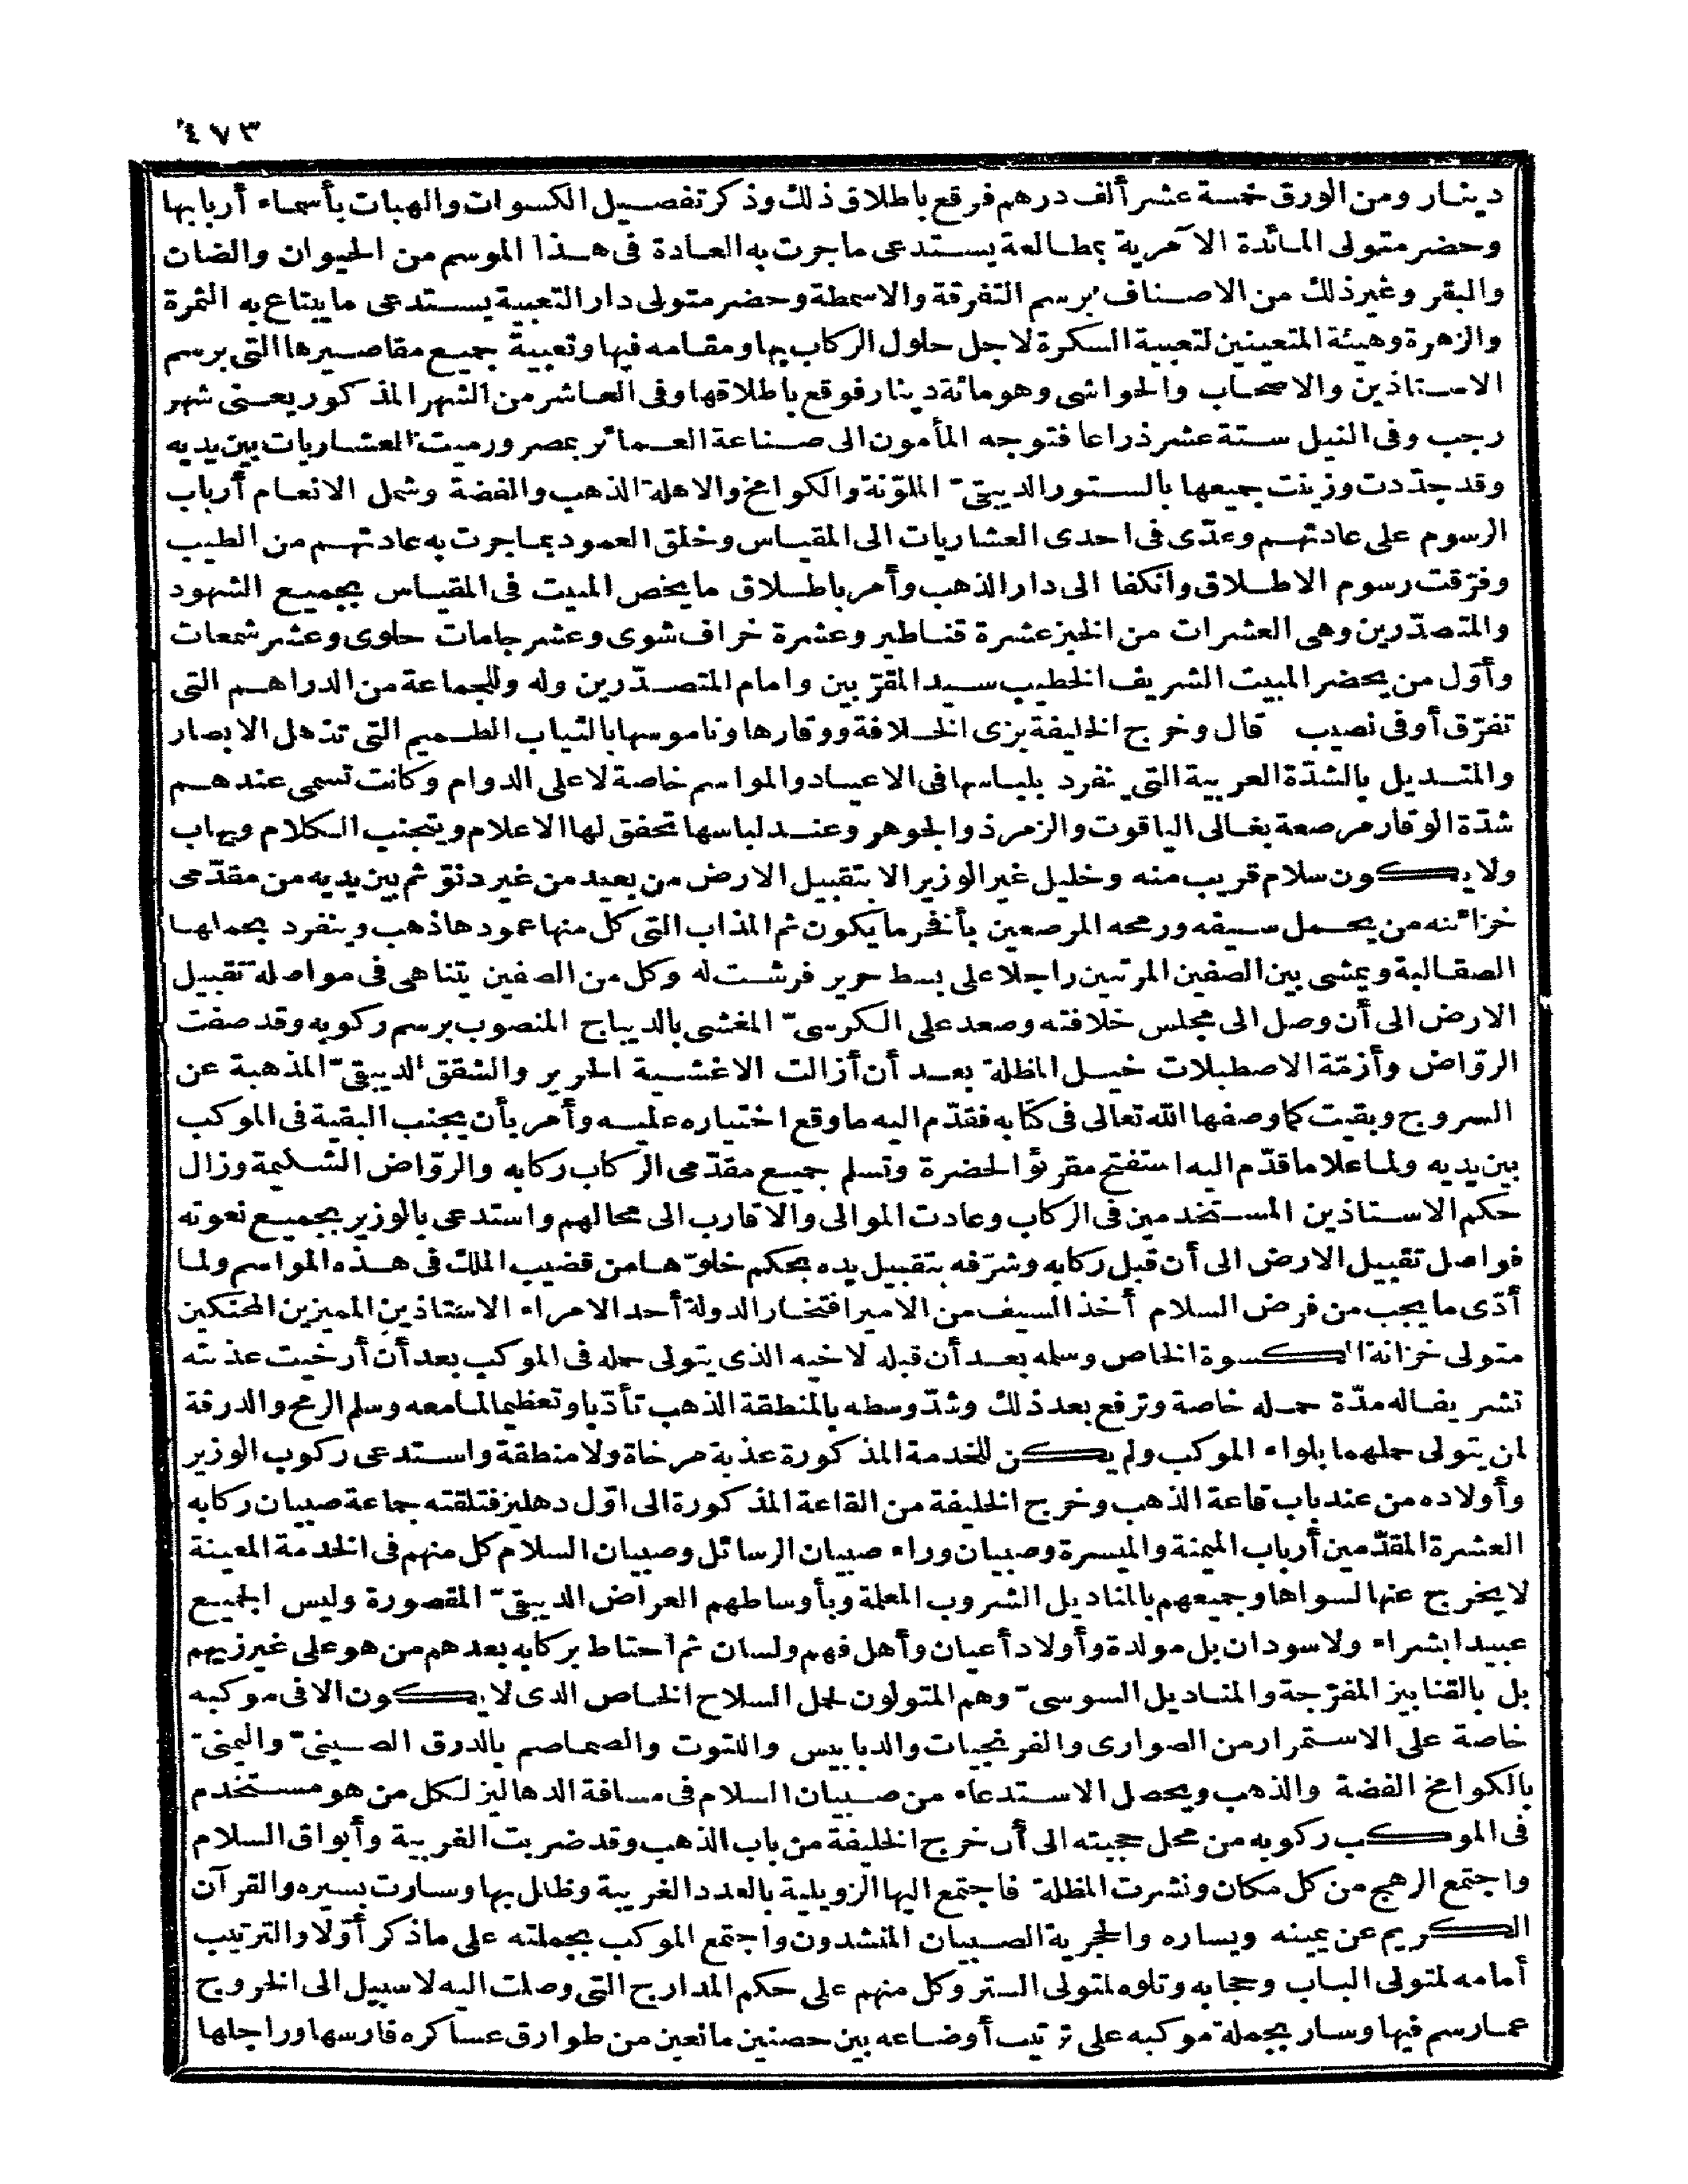 ٤٧٣
دينار ومن الورق خمسة عشر ألف درهم فوقع باطلاق ذلك وذكر تفصيل الكسوات والهبات بأسماء أربابها
وحضر متولى المائدة الآمرية بمطالعة يستدعى ماجرت به العادة فى هذا الموسم من الحيوان والضان
والبقر وغير ذلك من الاصناف برسم التفرقة والاسمطة وحضر متولى دار التعبية يستدعى ما يبتاع به الثمرة
والزهرة وهيئة المتعينين لتعبية السكرة لاجل حلول الركاب بها ومقامه فيها وتعبية جميع مقاصيرها التى برسم
الاستاذين والاصحاب والحواشى وهو مائة دينار فوقع باطلاقها وفى العاشر من الشهر المذكور يعنى شهر
رجب وفى النيل ستة عشر ذراعا فتوجه المأمون الى صناعة العمائر بمصر ورميت العشاريات بين يديه
وقد جدّدت وزينت جميعها بالستور الديبقىّ الملوّنة والكوامخ والاهلة الذهب والفضة وشمل الانعام أرباب
الرسوم على عادتهم وعدّى فى احدى العشاريات الى المقياس وخلق العمود بماجرت به عادتهم من الطيب
وفرّقت رسوم الاطلاق وانكفا الى دار الذهب وأمر باطلاق ما يخص المبيت فى المقياس بجميع الشهود
والمتصدّرين وهى العشرات من الخبز عشرة قناطير وعشرة خراف شوى وعشر جامات حلوى وعشر شمعات
وأوّل من يحضر المبيت الشريف الخطيب سيد المقرّبين وامام المتصدّرين وله وللجماعة من الدراهم التى
تفرّق أوفى نصيب قال وخرج الخليفة بزى الخلافة ووقارها وناموسها بالثياب الطميم التى تذهل الابصار
والمنديل بالشدّة العربية التى ينفرد بلباسها فى الاعياد والمواسم خاصة لا على الدوام وكانت تسمى عندهم
شدّة الوقار مرصعة بغالى الياقوت والزمرذ والجوهر وعند لباسها تخفق لها الاعلام ويتجنب الكلام ويهاب
ولا يكون سلام قريب منه وخليل غير الوزير الا بتقبيل الارض من بعيد من غير دنوّ ثم بين يديه من مقدّمى
خزائنه من يحمل سيفه ورمحه المرصعين بأفخر ما يكون ثم المذاب التى كل منها عمودها ذهب وينفرد بحملها
الصقالبة ويمشى بين الصفين المرتبين راجلا على بسط حرير فرشت له وكل من الصفين يتناهى فى مواصلة تقبيل
الارض الى أن وصل الى مجلس خلافته وصعد على الكرسىّ المغشى بالديباج المنصوب برسم ركوبه وقد صفت
الروّاض وأزمّة الاصطبلات خيل المظلة بعد أن أزالت الاغشية الحرير والشقق الديبقىّ المذهبة عن
السروج وبقيت كما وصفها الله تعالى فى كتابه فقدّم اليه ما وقع اختياره عليه وأمر بأن يجنب البقية فى الموكب
بين يديه ولما علا ما قدّم اليه استفتح مقرئو الحضرة وتسلم جميع مقدّمى الركاب ركابه والروّاض الشكيمة وزال
حكم الاستاذين المستخدمين فى الركاب وعادت الموالى والاقارب الى محالهم واستدعى بالوزير بجميع نعوته
فواصل تقبيل الارض الى أن قبل ركابه وشرّفه بتقبيل يده بحكم خلوّها من قضيب الملك فى هذه المواسم ولما
أدّى ما يجب من فرض السلام أخذ السيف من الامير افتخار الدولة أحد الامراء الاستاذين المميزين المحنكين
متولى خزانة الكسوة الخاص وسلمه بعد أن قبله لاخيه الذى يتولى حمله فى الموكب بعد أن أرخيت عذبته
تشريفا له مدّة حمله خاصة وترفع بعد ذلك وشدّ وسطه بالمنطقة الذهب تأدّبا وتعظيما لما معه وسلم الرمح والدرقة
لمن يتولى حملهما بلواء الموكب ولم يكن للخدمة المذكورة عذبة مرخاة ولا منطقة واستدعى ركوب الوزير
وأولاده من عند باب قاعة الذهب وخرج الخليفة من القاعة المذكورة الى اوّل دهليز فتلقته جماعة صبيان ركابه
العشرة المقدّمين أرباب الميمنة والميسرة وصبيان وراء صبيان الرسائل وصبيان السلام كل منهم فى الخدمة المعينة
لا يخرج عنها لسواها وجميعهم بالمناديل الشروب المعلمة وبأوساطهم العراض الديبقىّ المقصورة وليس الجميع
عبيدا بشراء ولا سودان بل مولدة وأولاد أعيان وأهل فهم ولسان ثم احتاط بركابه بعدهم من هو على غير زيهم
بل بالقنابيز المفرّجة والمناديل السوسىّ وهم المتولون لحمل السلاح الخاص الذى لا يكون الا فى موكبه
خاصة على الاستمرار من الصوارى والفرنجيات والدبابيس واللتوت والصماصم بالدرق الصينىّ واليمنىّ
بالكوامخ الفضة والذهب ويحصل الاستدعاء من صبيان السلام فى مسافة الدهاليز لكل من هو مستخدم
فى الموكب ركوبه من محل حجبته الى أن خرج الخليفة من باب الذهب وقد ضربت الغربية وأبواق السلام
واجتمع الرهج من كل مكان ونشرت المظلة فاجتمع اليها الزويلية بالعدد الغريبة وظلل بها وسارت بسيره والقرآن
الكريم عن يمينه ويساره والحجرية الصبيان المنشدون واجتمع الموكب بجملته على ماذكر أوّلا والترتيب
أمامه لمتولى الباب وحجابه وتلوه لمتولى الستر وكل منهم على حكم المدارج التى وصلت اليه لا سبيل الى الخروج
عمارسم فيها وسار بجملة موكبه على ترتيب أوضاعه بين حصنين مانعين من طوارق عساكره فارسها وراجلها